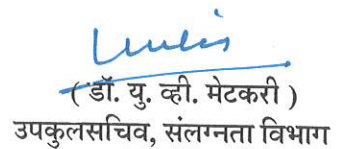 ( डॉ. यु. व्ही. मेटकरी )
उपकुलसचिव, संलग्नता विभाग